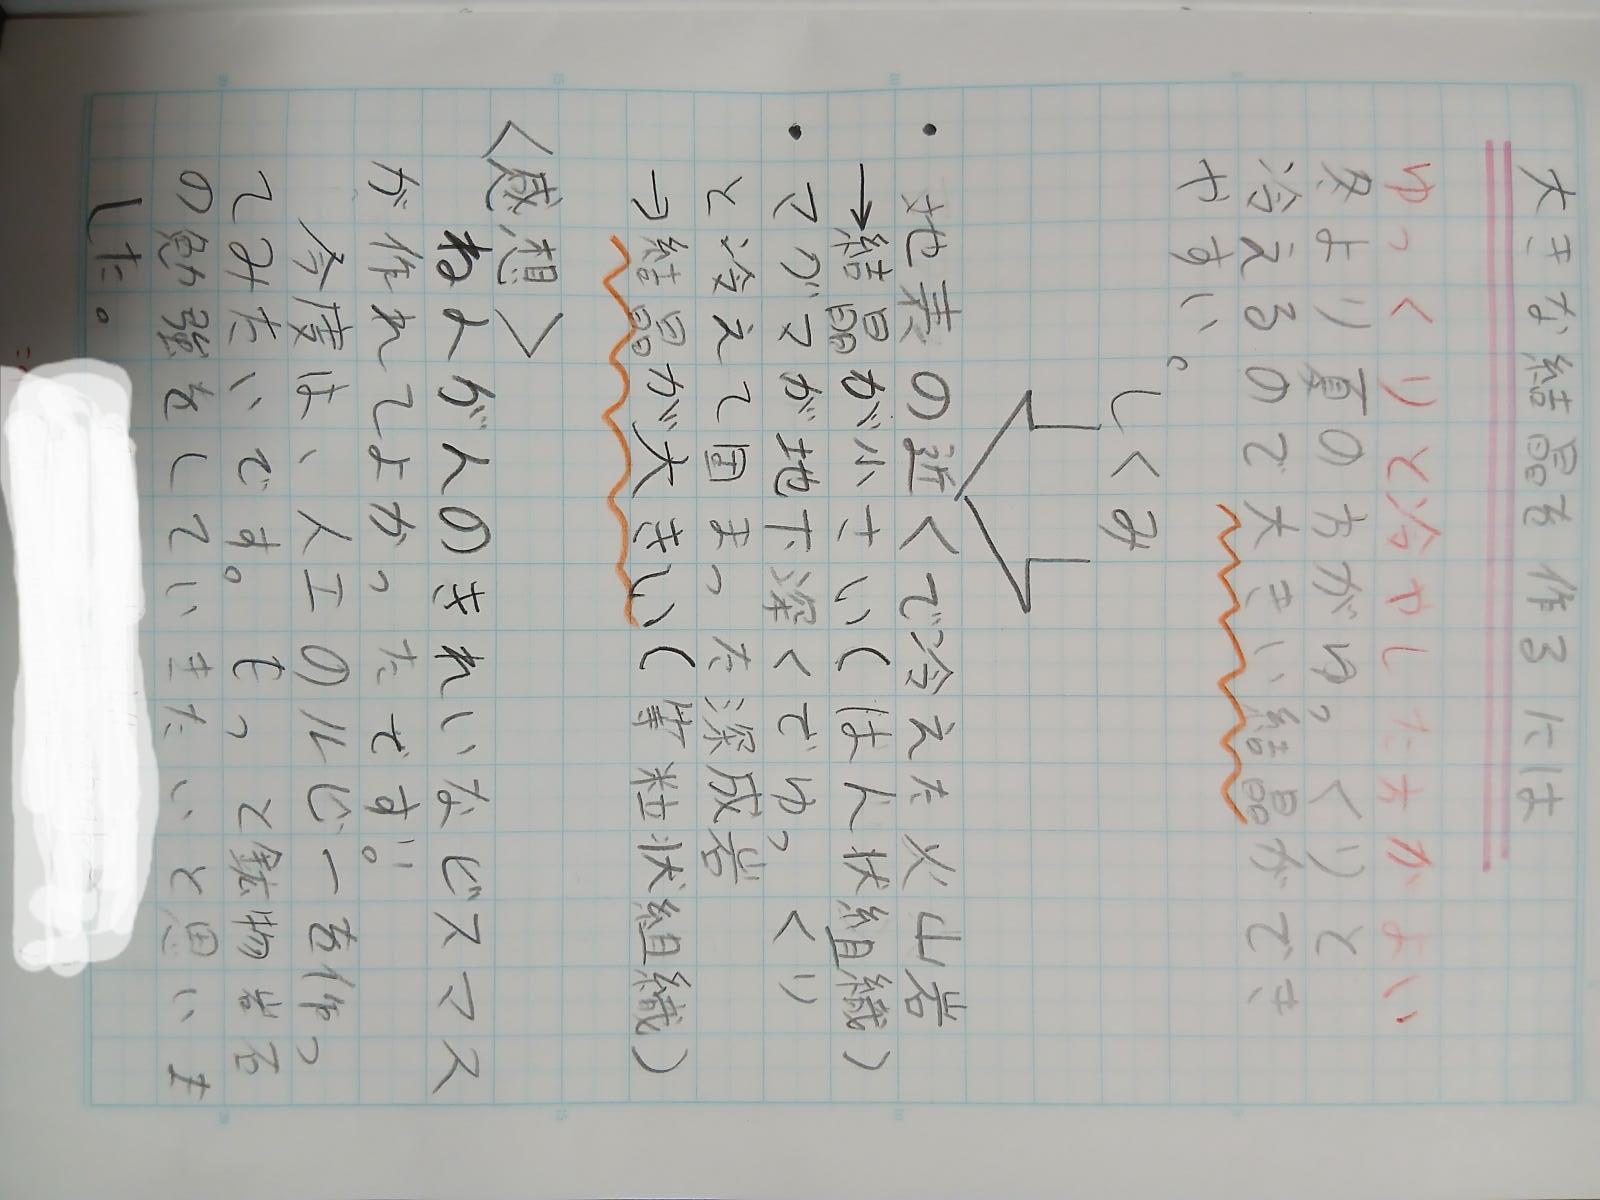 大きな結晶を作るには
ゆっくりと冷やした方がよい
冬より夏の方がゆっくりと
冷えるので大きい結晶ができ
やすい。
しくみ
・地表の近くで冷えた火山岩
→結晶が小さい(はん状組織)
・マグマが地下深くでゆっくり
と冷えて固まった深成岩
→結晶が大きい(等粒状組織)
<感想>
ねんがんのきれいなビスマス
が作れてよかったです!!。
今度は、人工のルビーを作っ
てみたいです。もっと鉱物岩石
の勉強をしていきたいと思いま
した。